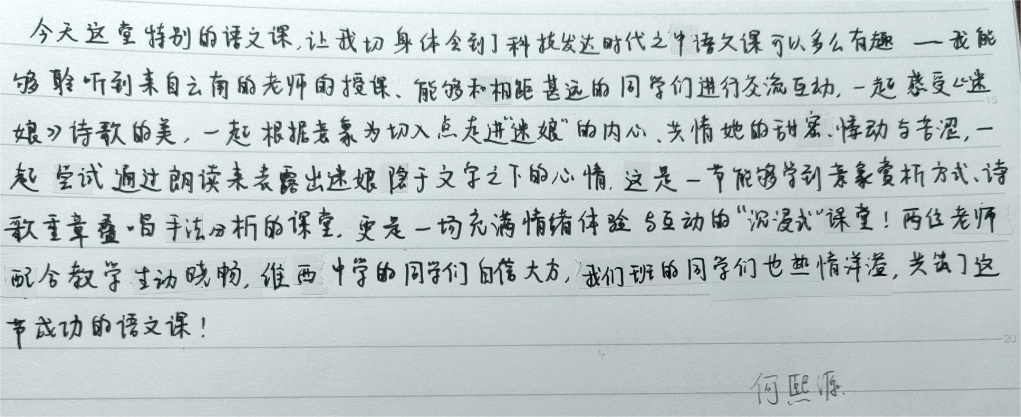 今天这堂特别的语文课,让我切身体会到了科技发达时代之中语文课可以多么有趣——我能
够聆听到来自云南的老师的授课、能够和相距甚远的同学们进行交流互动,一起感受《迷
娘》诗歌的美,一起根据意象为切入点走进"迷娘"的内心、共情她的甜蜜、悸动与苦涩,一
起尝试通过朗读来表露出迷娘隐于文字之下的心情.这是一节能够学到意象赏析方式、诗
歌重章叠唱手法分析的课堂,更是一场充满情绪体验与互动的"沉浸式"课堂!两位老师
配合教学生动晓畅,维西中学的同学们自信大方,我们班的同学们也热情洋溢,共筑了这
节成功的语文课!
何熙源
15
20